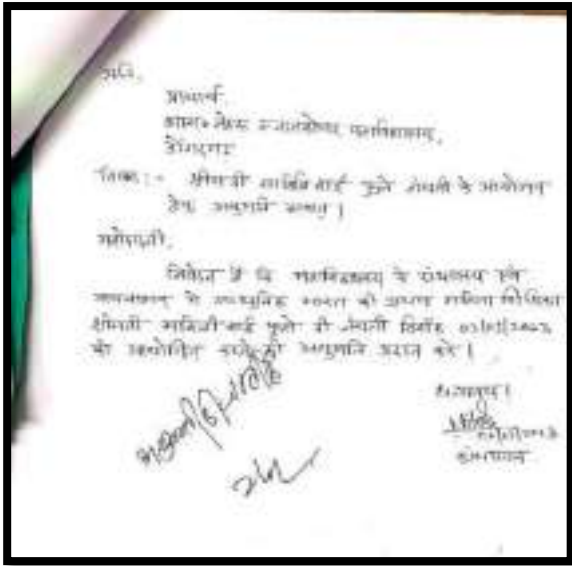 प्रति,
प्राचार्य
शास० नेहरू स्नातकोत्तर महाविद्यालय,
डोंगरगढ़
विषय :- श्रीमती सावित्री बाई फुले जयंती के आयोजन
हेतु अनुमति बाबत् ।
महोदयजी,
निवेदन है कि महाविद्यालय के ग्रंथालय एवं
वाचनालय में आधुनिक भारत की प्रथम महिला शिक्षिका
श्रीमती सावित्री बाई फुले की जयंती दिनाँक 03/01/2023
को आयोजित करने की अनुमति प्रदान करें ।
धन्यवाद ।
ग्रंथपाल